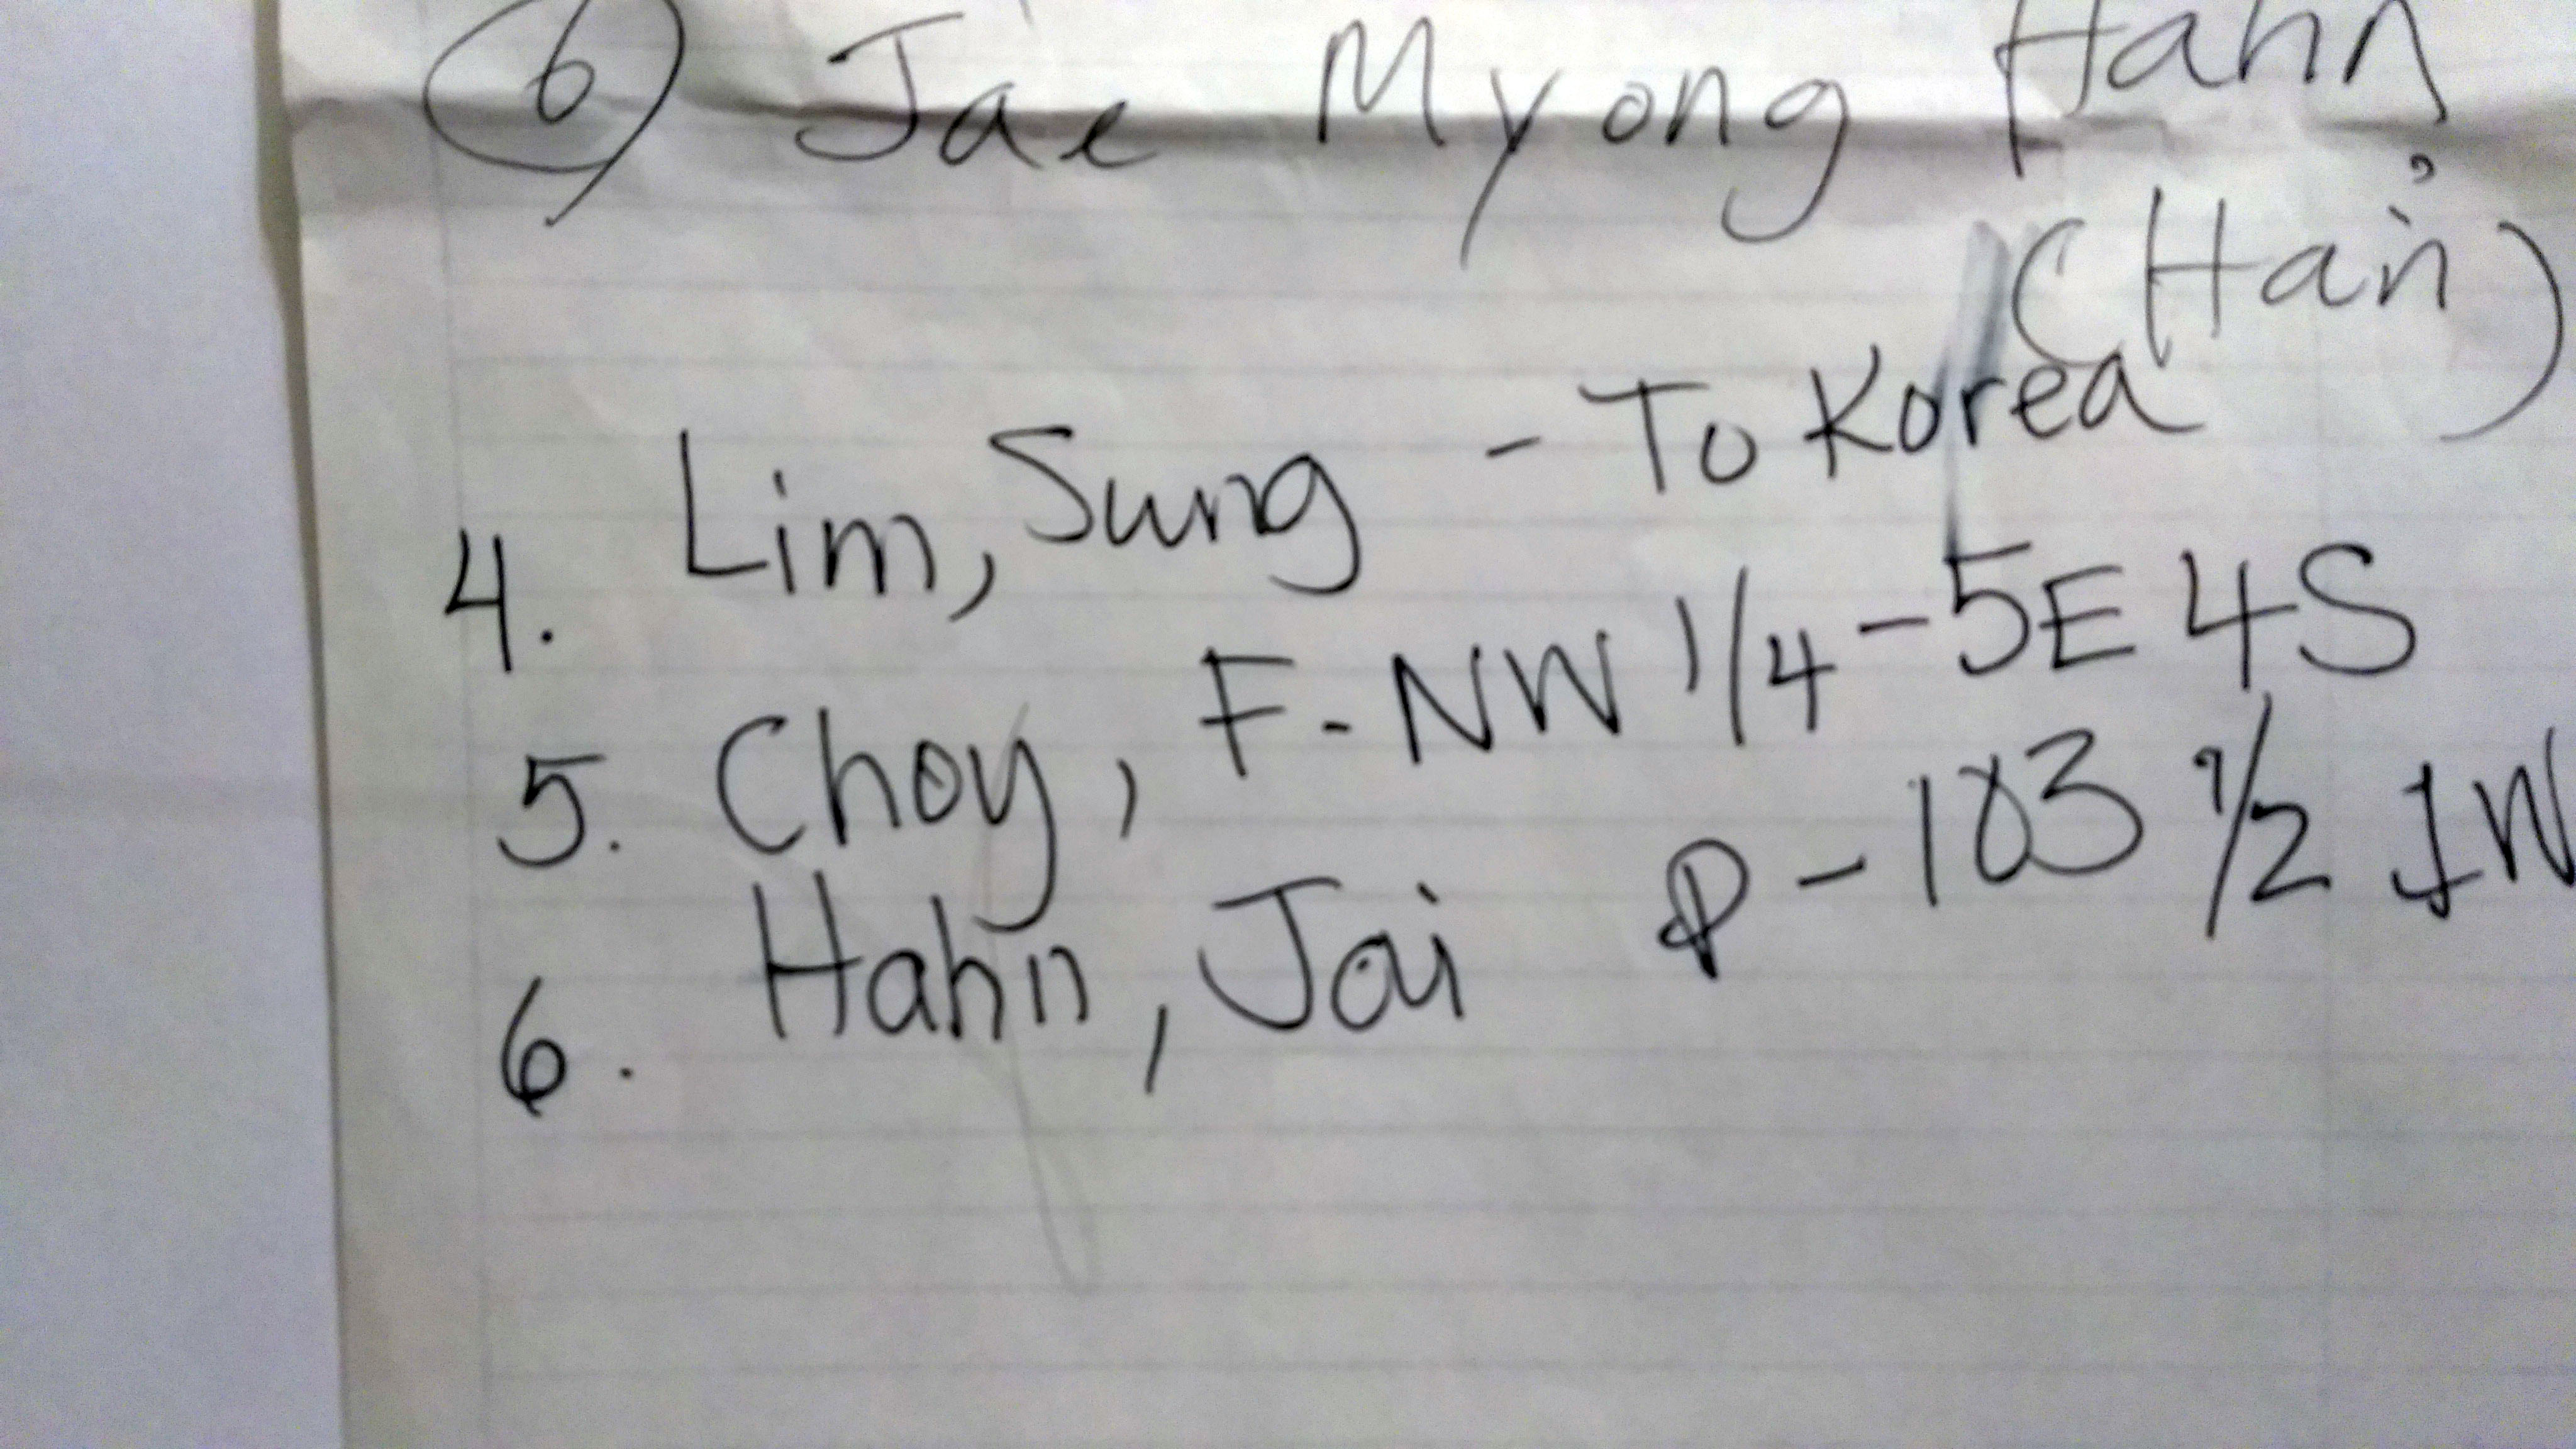 6 Jae Myong Hahn,
(Han)
4. Lim, Sung - To Korea
5. Choy, F. - NW 1/4 - 5E 4S
6. Hahn, Jai P - 103 1/2 1W